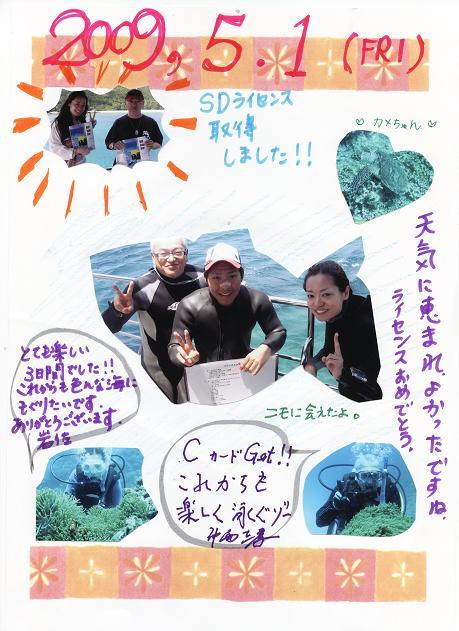 2009.5.1 (FRI)
SDライセンス
取得
しました!!
♡ カメちゃん ♡
天気に恵まれ、よかったですね。
ライセンスおめでとう。
とても楽しい
3日間でした!!
これからも色んな海に
もぐりたいです
ありがとうございます。
ニモに会えたよ。
CカードGet!!
これからも
楽しく泳ぐゾー